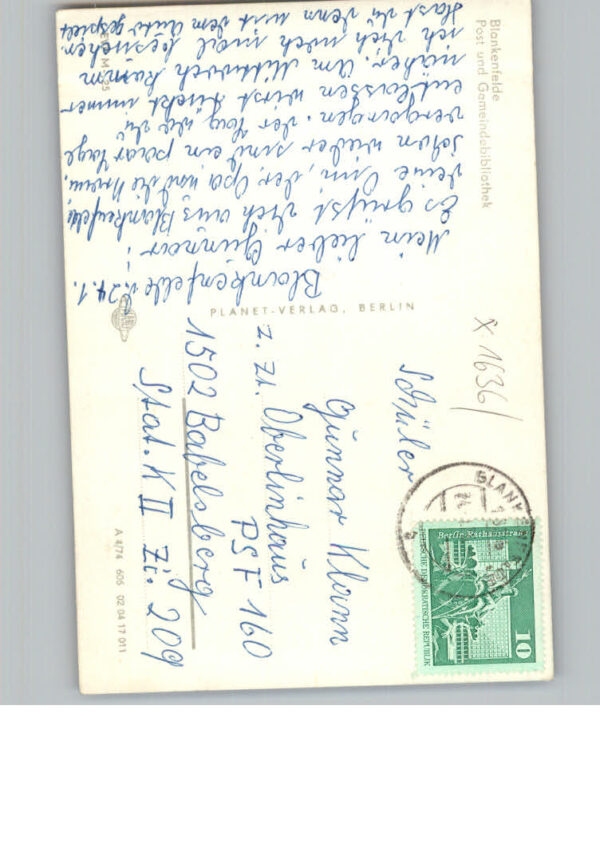 Blankenfelde
Post und Gemeindebibliothek
Blankenfelde d. 24.1.
Mein lieber Gunnar!
Es grüßt dich aus Blankenfelde
deine Omi, der Opa und die
schon wieder sind ein paar Tage
vergangen. Der Tag wo du
entlassen wirst rückt immer
näher. Am Mittwoch komm
ich dich noch mal besuchen.
Hast du denn mit dem Auto gespielt
PLANET-VERLAG, BERLIN
X 1636/
Schüler
Gunnar Klann
z. Zt. Oberlinhaus
PSF 160
1502 Babelsberg
Stat. K II Zi. 209
A 4/74 606 02 04 17 011
BLANKE
Berlin, Rathausstraße
DEUTSCHE DEMOKRATISCHE REPUBLIK
10